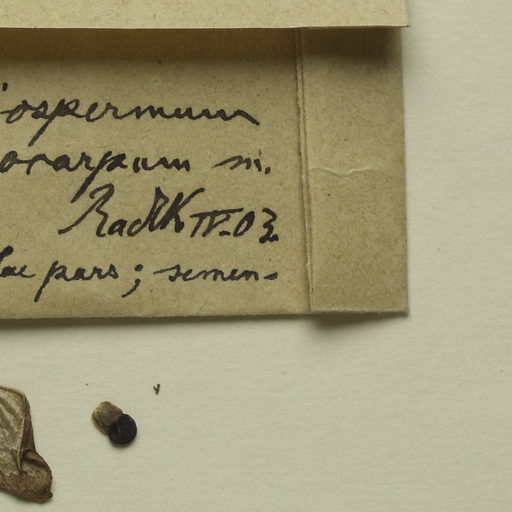 iospermum
ocarpum m.
Radlk IV.03.
lae pars; semen-